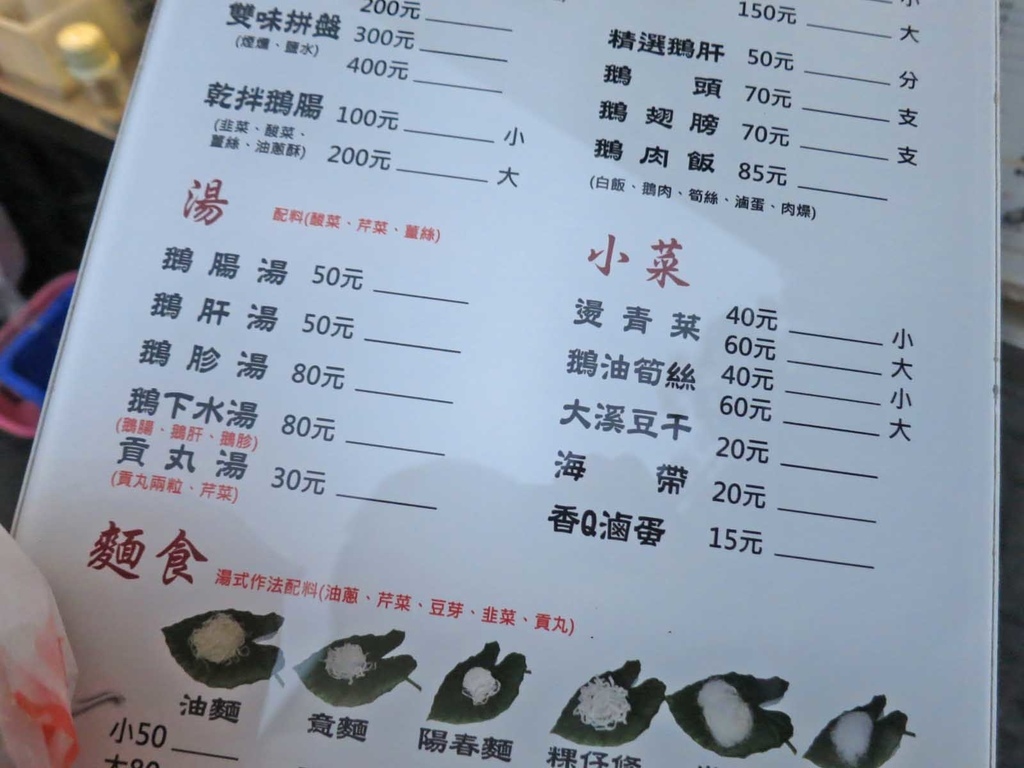 200元
雙味拼盤 300元
(煙燻、鹽水)
400元
乾拌鵝腸 100元 小
(韭菜、酸菜、
薑絲、油蔥酥) 200元 大
湯 配料(酸菜、芹菜、薑絲)
鵝腸湯 50元
鵝肝湯 50元
鵝胗湯 80元
鵝下水湯 80元
(鵝腸、鵝肝、鵝胗)
貢丸湯 30元
(貢丸兩粒、芹菜)
小
150元 大
精選鵝肝 50元 分
鵝頭 70元 支
鵝翅膀 70元 支
鵝肉飯 85元
(白飯、鵝肉、筍絲、滷蛋、肉燥)
小菜
燙青菜 40元 小
60元 大
鵝油筍絲 40元 小
60元 大
大溪豆干 20元
海帶 20元
香Q滷蛋 15元
麵食 湯式作法配料(油蔥、芹菜、豆芽、韭菜、貢丸)
油麵
意麵
陽春麵
粿仔條
小50
大80